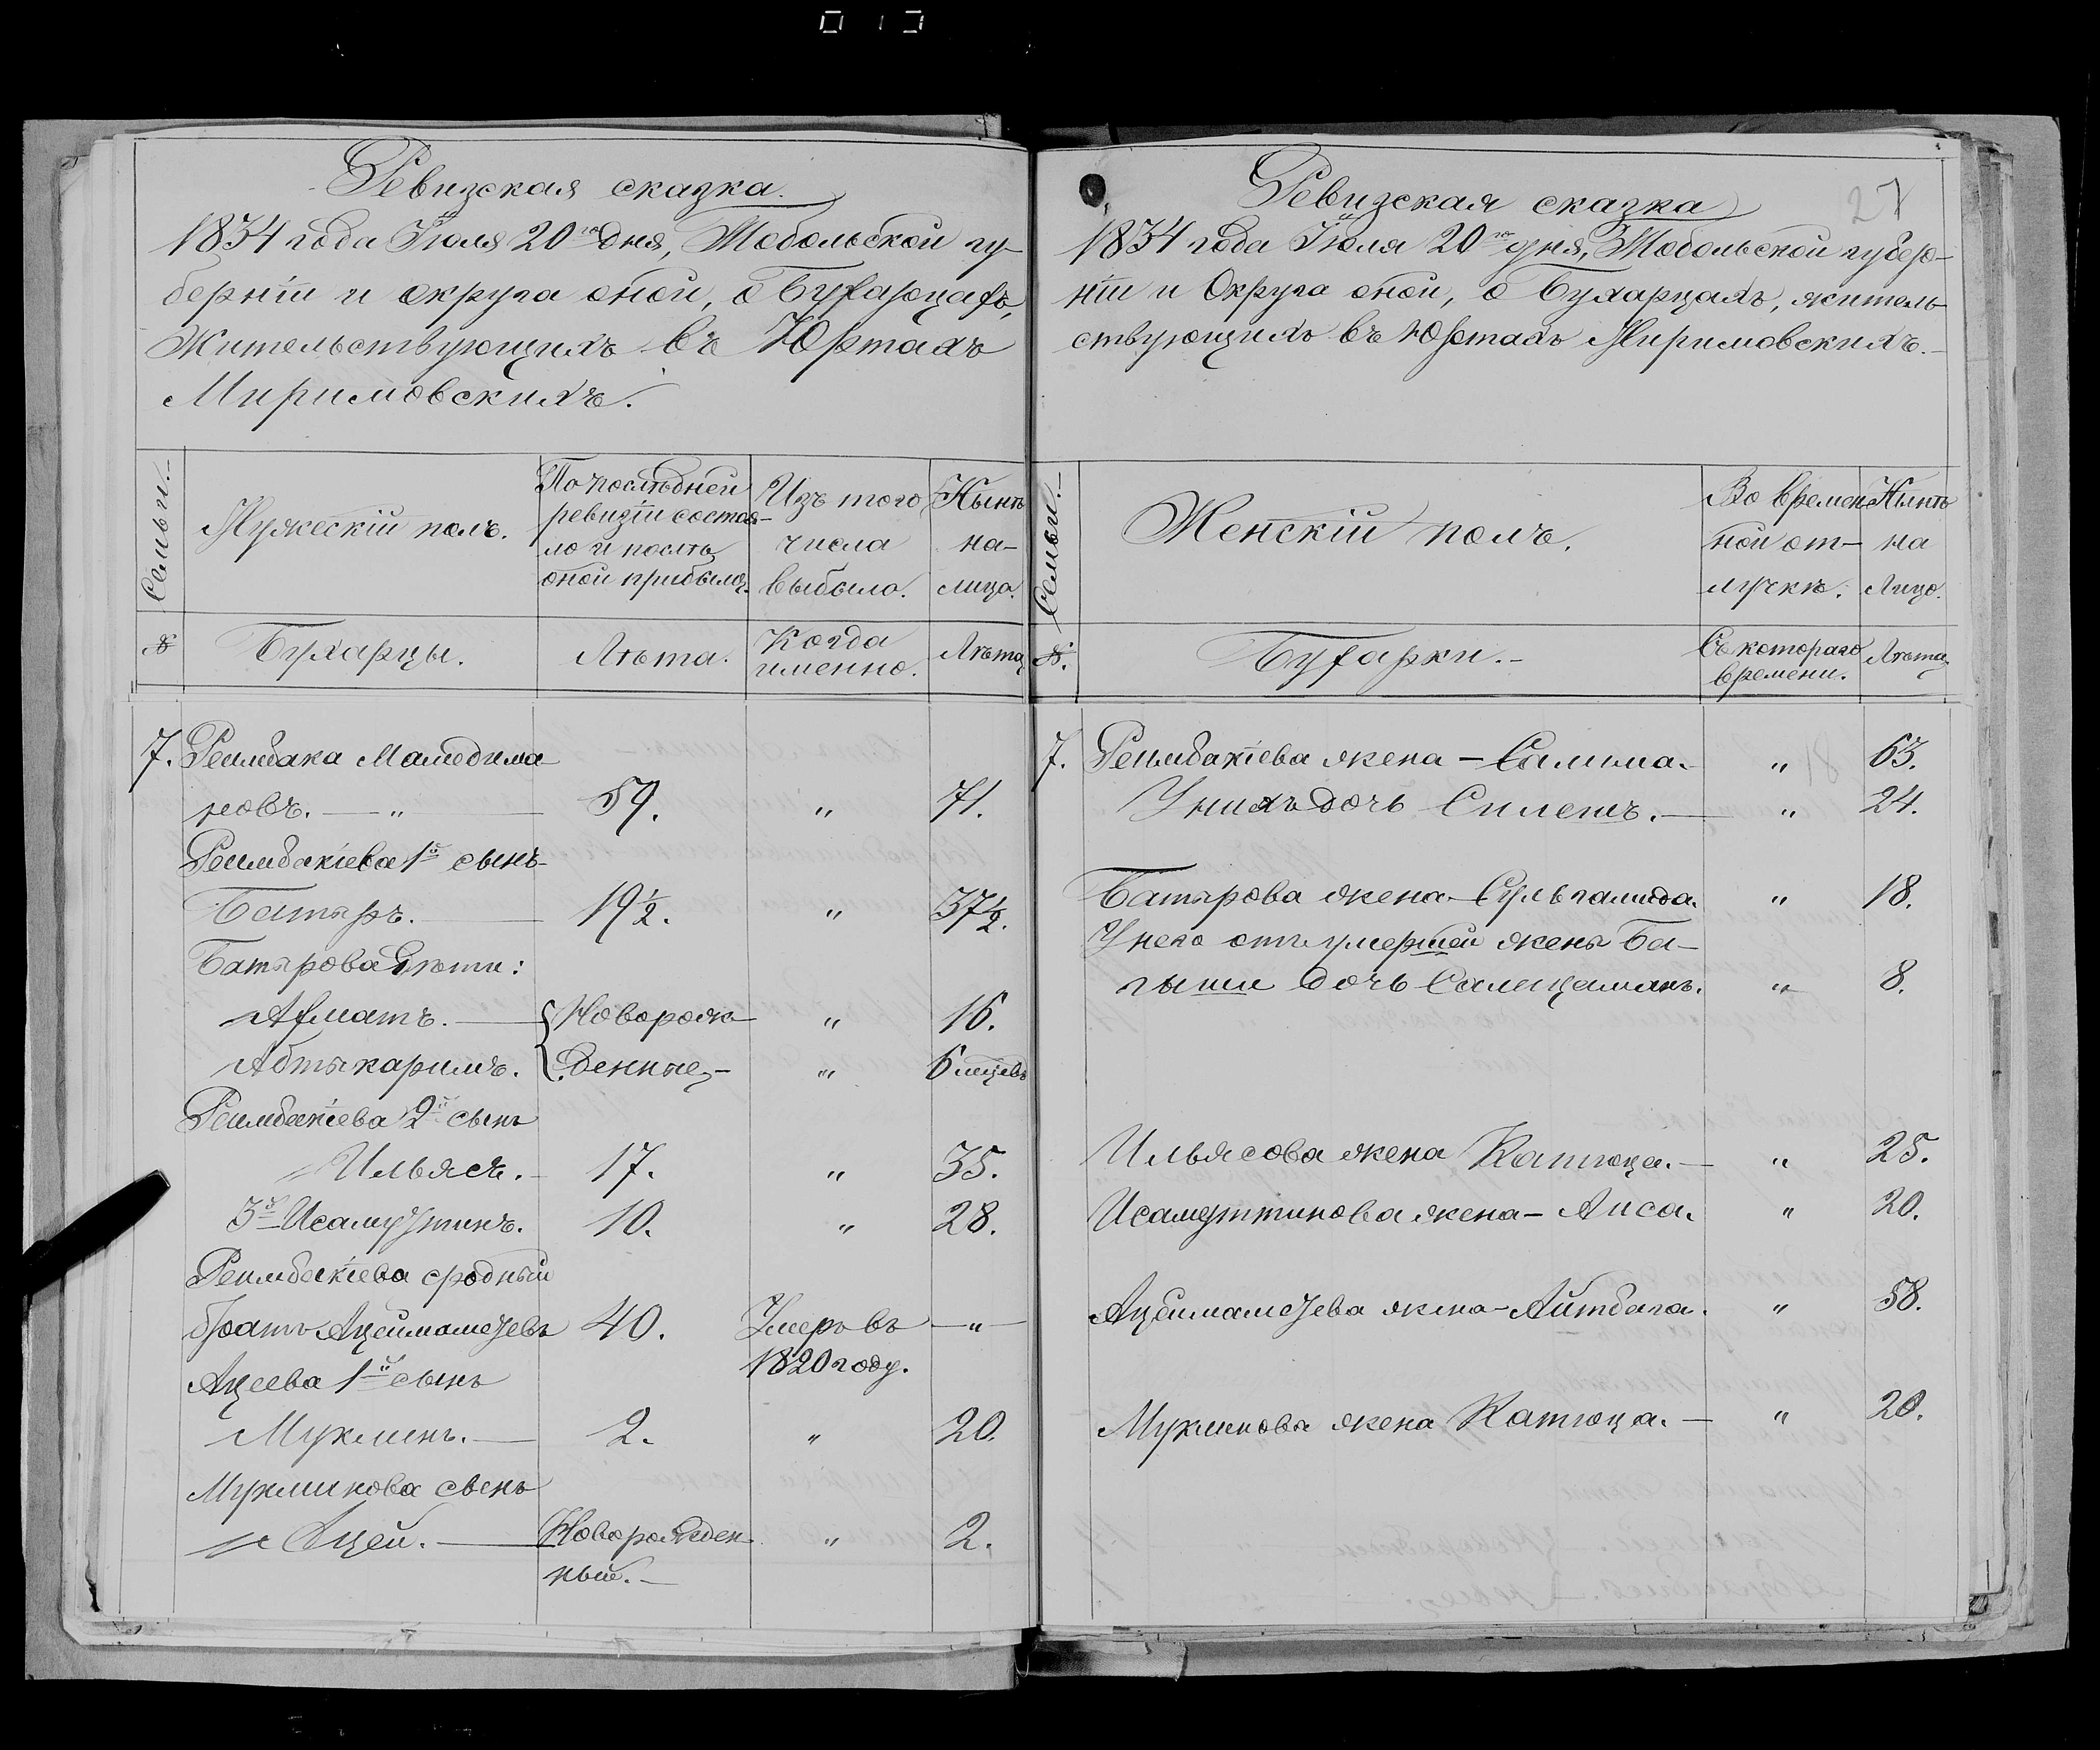 Ревизская сказка.
1834 года Іюля 20го дня, Тобольской гу-
берніи и округа оной, о Бухарцахъ,
Жительствующихъ въ Юртахъ
Миримовскихъ.
Семьи.
Мужескій полъ.
По послѣдней
ревизіи состоя-
ло и послѣ
оной прибыло.
Изъ того
числа
выбыло.
Нынѣ
на-
лицо.
№
Бухарцы.
Лѣта.
Когда
именно.
Лѣта
7. Реимбака Мамедима
новъ. — „ — 59. „ 71.
Реимбакіева 1й сынъ
Батыръ. — 19½. „ 37½.
Батырова дѣти:
Ахматъ. — Новорож- „ 16.
Абтыкаримъ. денные „ 6 мцевъ
Реимбакіева 2й сынъ
Ильясъ. — 17. „ 35.
3й Исамутинъ. 10. „ 28.
Реимбакіева сродный
братъ Ацеймаметевъ 40. Умеръ въ — „ —
Ацеева 1й сынъ 1820 году.
Мукминъ. — 2. „ 20.
Мукминова сынъ
Ацей. — Новорожден „ 2.
ный. —
27
Ревизская сказка
1834 года Іюля 20го дня, Тобольской губер-
ніи и Округа оной, о Бухарцахъ, житель
ствующихъ въ Юртахъ Миримовскихъ.
Семьи.
Женскій полъ.
Во времен
ной от-
лучкѣ.
Нынѣ
на
Лицо.
№.
Бухарки.
Съ котораго
времени.
Лѣта
7. Реимбакіева жена — Салима. „ 63.
У нихъ дочь Силетъ. — „ 24.
Батырова жена — Сульгамида. „ 18.
У него отъ умершей жены Ба-
гыши дочь Салецаманъ. „ 8.
Ильясова жена Катюца. — „ 25.
Исамуттинова жена — Аиса. „ 20.
Ацеймаметева жена — Айтбага. „ 58.
Мукминова жена Катюца. — „ 20.